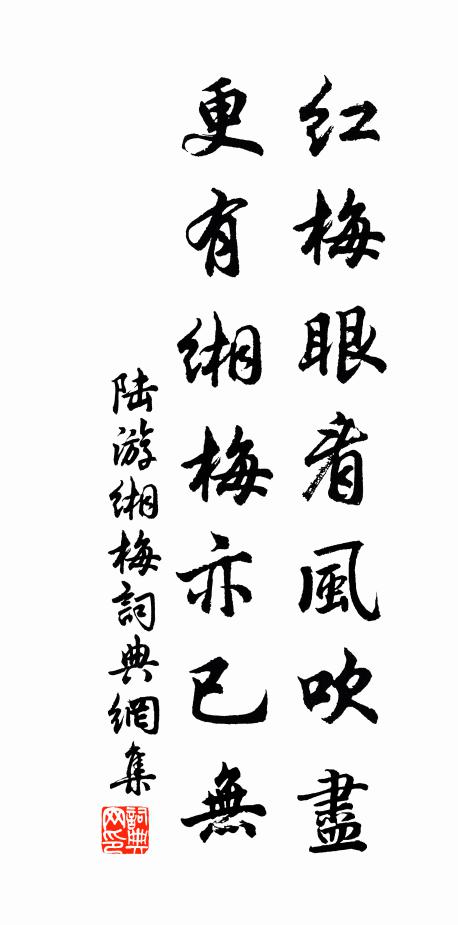 红梅眼看風吹盡
更有緗梅亦已無
陆游緗梅詞典網集
詞典网印